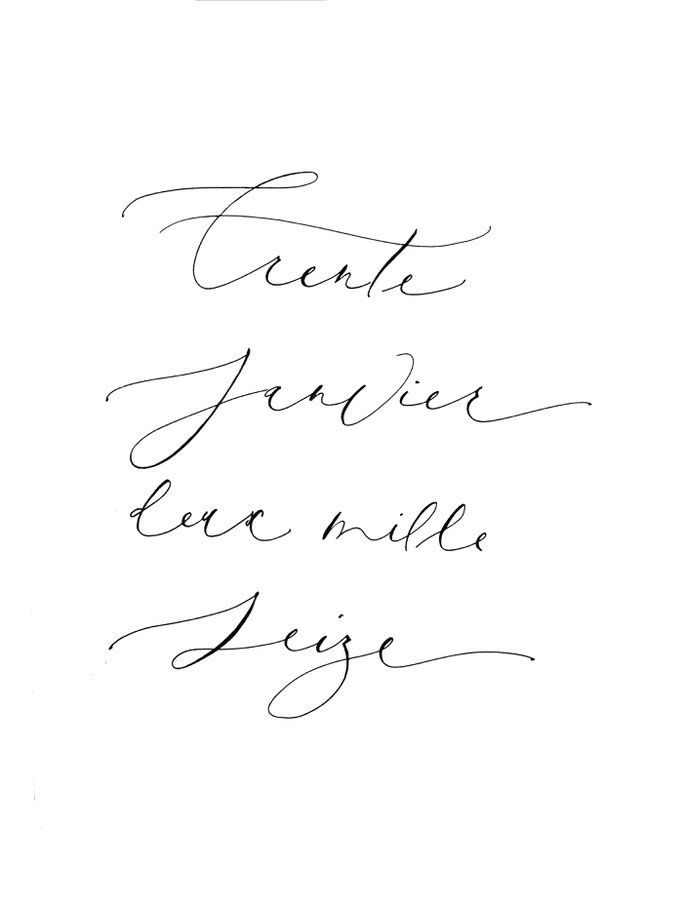 trente
janvier
deux mille
seize